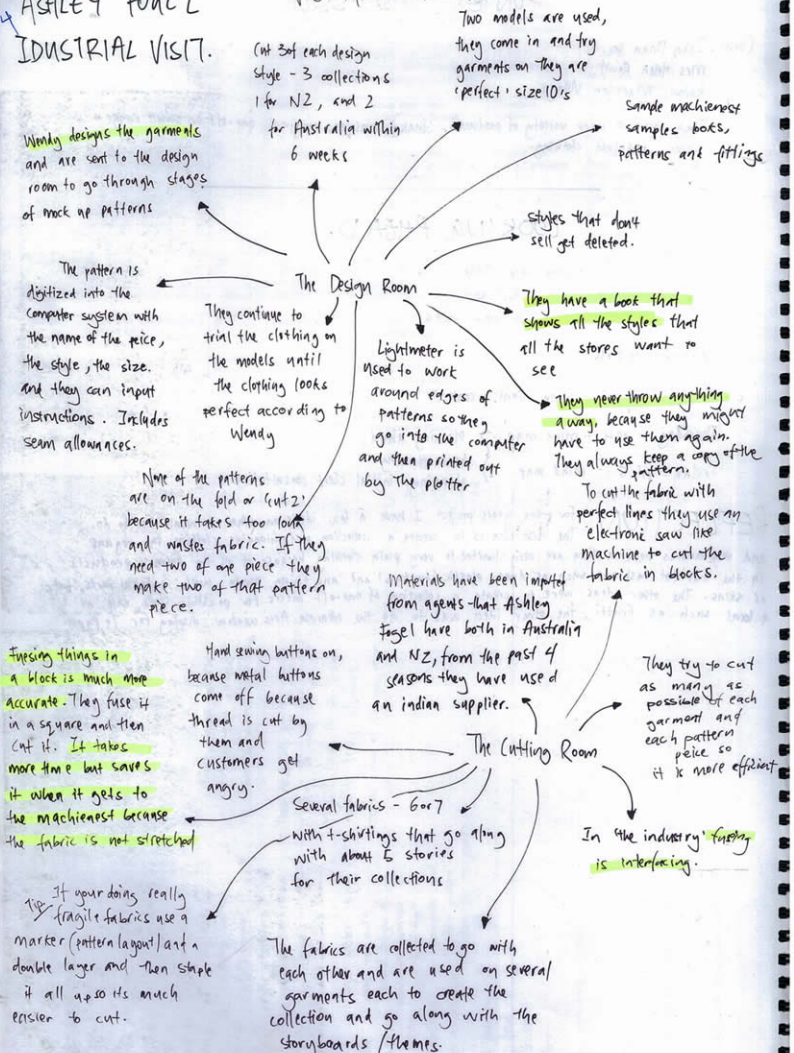 ASHLEY FOGEL
IDUSTRIAL VISIT.
Wendy designs the garments
and are sent to the design
room to go through stages
of mock up patterns
Cut 3 of each design
style - 3 collections
1 for NZ, and 2
for Australia within
6 weeks
Two models are used,
they come in and try
garments on they are
'perfect' size 10's
Sample machienest
samples looks,
patterns and fittings
styles that don't
sell get deleted.
The Design Room
The pattern is
digitized into the
computer system with
the name of the peice,
the style, the size.
and they can input
instructions. Includes
seam allowances.
They continue to
trial the clothing on
the models until
the clothing looks
perfect according to
Wendy
Lightmeter is
used to work
around edges of
patterns so they
go into the computer
and then printed out
by the plotter
They have a book that
shows all the styles that
all the stores want to
see
They never throw anything
away, because they might
have to use them again.
They always keep a copy of the
pattern.
None of the patterns
are on the fold or 'cut 2'
because it takes too long
and wastes fabric. If they
need two of one piece they
make two of that pattern
piece.
To cut the fabric with
perfect lines they use an
electronic saw like
machine to cut the
fabric in blocks.
Materials have been imputed
from agents that Ashley
Fogel have both in Australia
and NZ, from the past 4
seasons they have used
an indian supplier.
The Cutting Room
Fuesing things in
a block is much more
accurate. They fuse it
in a square and then
cut it. It takes
more time but saves
it when it gets to
the machienest because
the fabric is not stretched
Hand sewing buttons on,
because metal buttons
come off because
thread is cut by
them and
customers get
angry.
They try to cut
as many as
possible of each
garment and
each pattern
peice so
it is more efficient
Several fabrics - 6 or 7
with t-shirtings that go along
with about 5 stories
for their collections
In 'the industry' fusing
is interfacing.
Tip
If your doing really
fragile fabrics use a
marker (pattern layout) and a
double layer and then staple
it all up so its much
easier to cut.
The fabrics are collected to go with
each other and are used on several
garments each to create the
collection and go along with the
storyboards / themes.